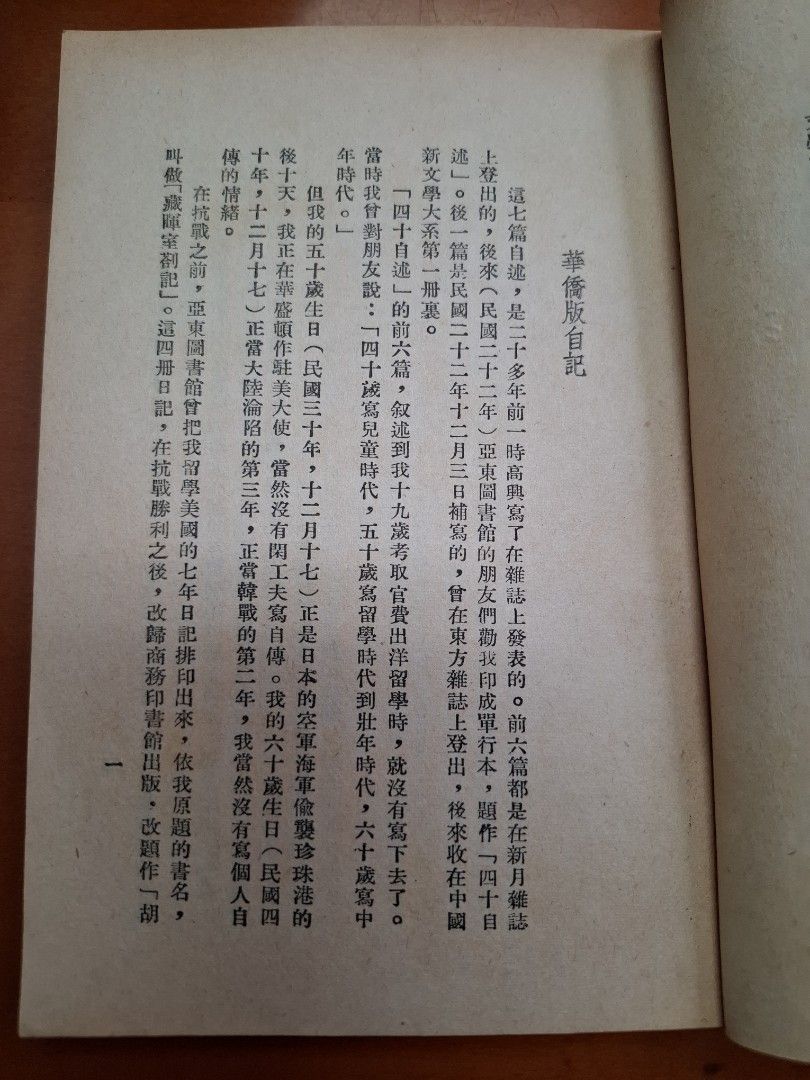 華僑版自記
這七篇自述，是二十多年前一時高興寫了在雜誌上發表的。前六篇都是在新月雜誌
上登出的，後來（民國二十二年）亞東圖書館的朋友們勸我印成單行本，題作「四十自
述」。後一篇是民國二十二年十二月三日補寫的，曾在東方雜誌上登出，後來收在中國
新文學大系第一冊裏。
「四十自述」的前六篇，叙述到我十九歲考取官費出洋留學時，就沒有寫下去了。
當時我曾對朋友說：「四十歲寫兒童時代，五十歲寫留學時代到壯年時代，六十歲寫中
年時代。」
但我的五十歲生日（民國三十年，十二月十七）正是日本的空軍海軍偷襲珍珠港的
後十天，我正在華盛頓作駐美大使，當然沒有閑工夫寫自傳。我的六十歲生日（民國四
十年，十二月十七）正當大陸淪陷的第三年，正當韓戰的第二年，我當然沒有寫個人自
傳的情緒。
在抗戰之前，亞東圖書館曾把我留學美國的七年日記排印出來，依我原題的書名，
叫做「藏暉室劄記」。這四冊日記，在抗戰勝利之後，改歸商務印書館出版，改題作「胡
一